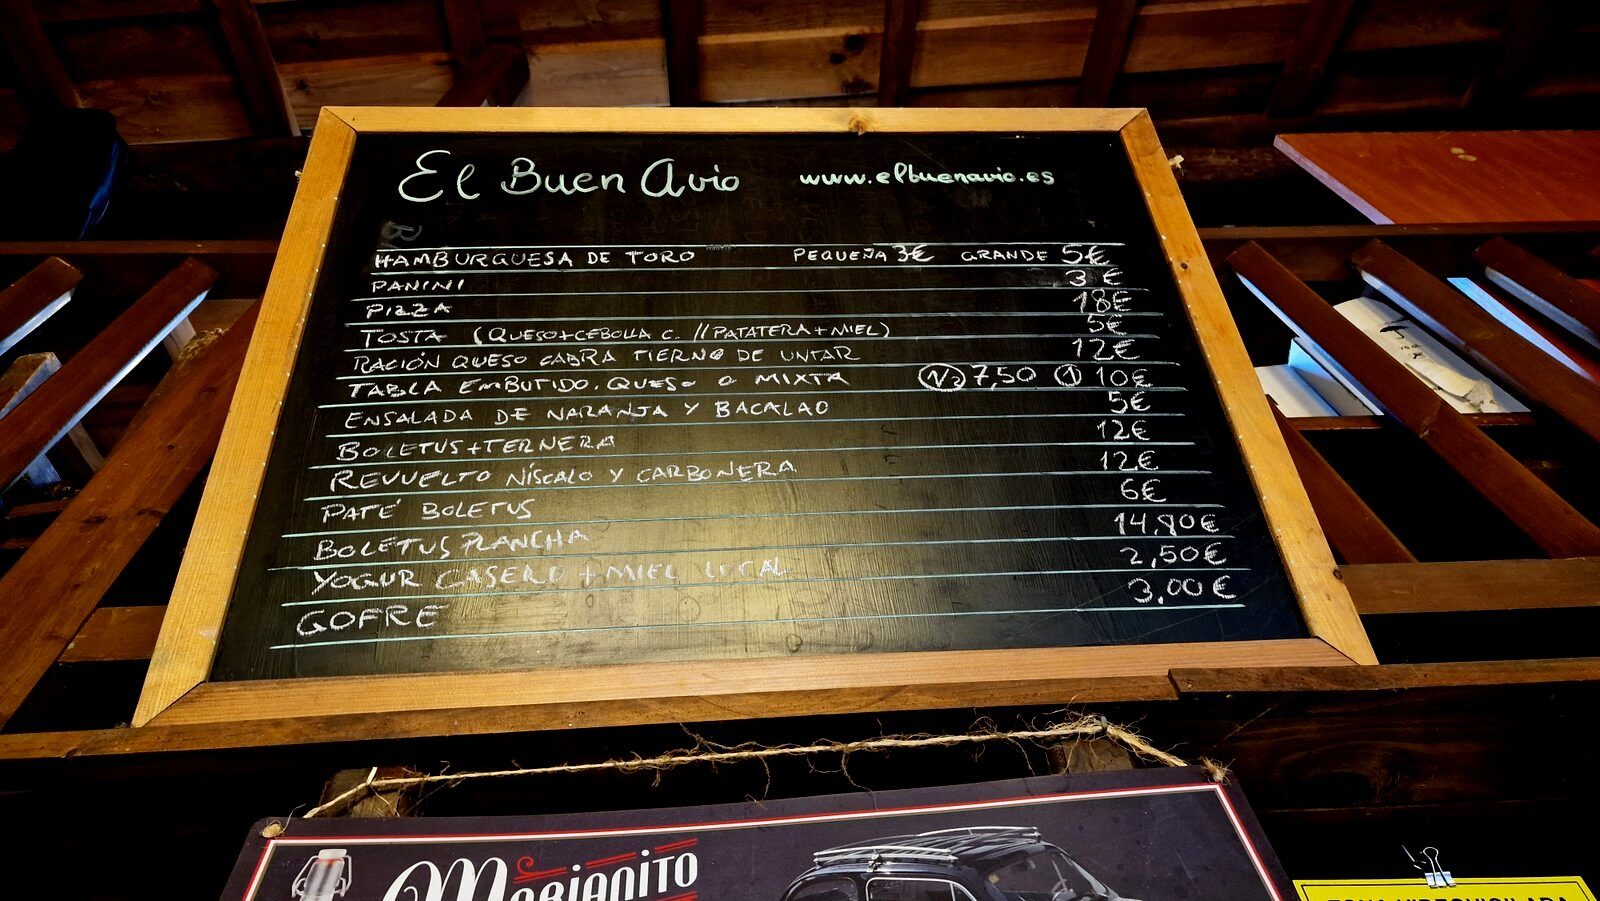 El Buen Avio www.elbuenavio.es
HAMBURGUESA DE TORO PEQUEÑA 3€ GRANDE 5€
PANINI 3€
PIZZA 18€
TOSTA (QUESO+CEBOLLA C. // PATATERA+MIEL) 5€
RACIÓN QUESO CABRA TIERNO DE UNTAR 12€
TABLA EMBUTIDO, QUESO O MIXTA 1/2 7,50 1 10€
ENSALADA DE NARANJA Y BACALAO 5€
BOLETUS+TERNERA 12€
REVUELTO NÍSCALO Y CARBONERA 12€
PATÉ BOLETUS 6€
BOLETUS PLANCHA 14,90€
YOGUR CASERO + MIEL LOCAL 2,50€
GOFRE 3,00€
Morianito
ZONA VIDEOVIGILADA